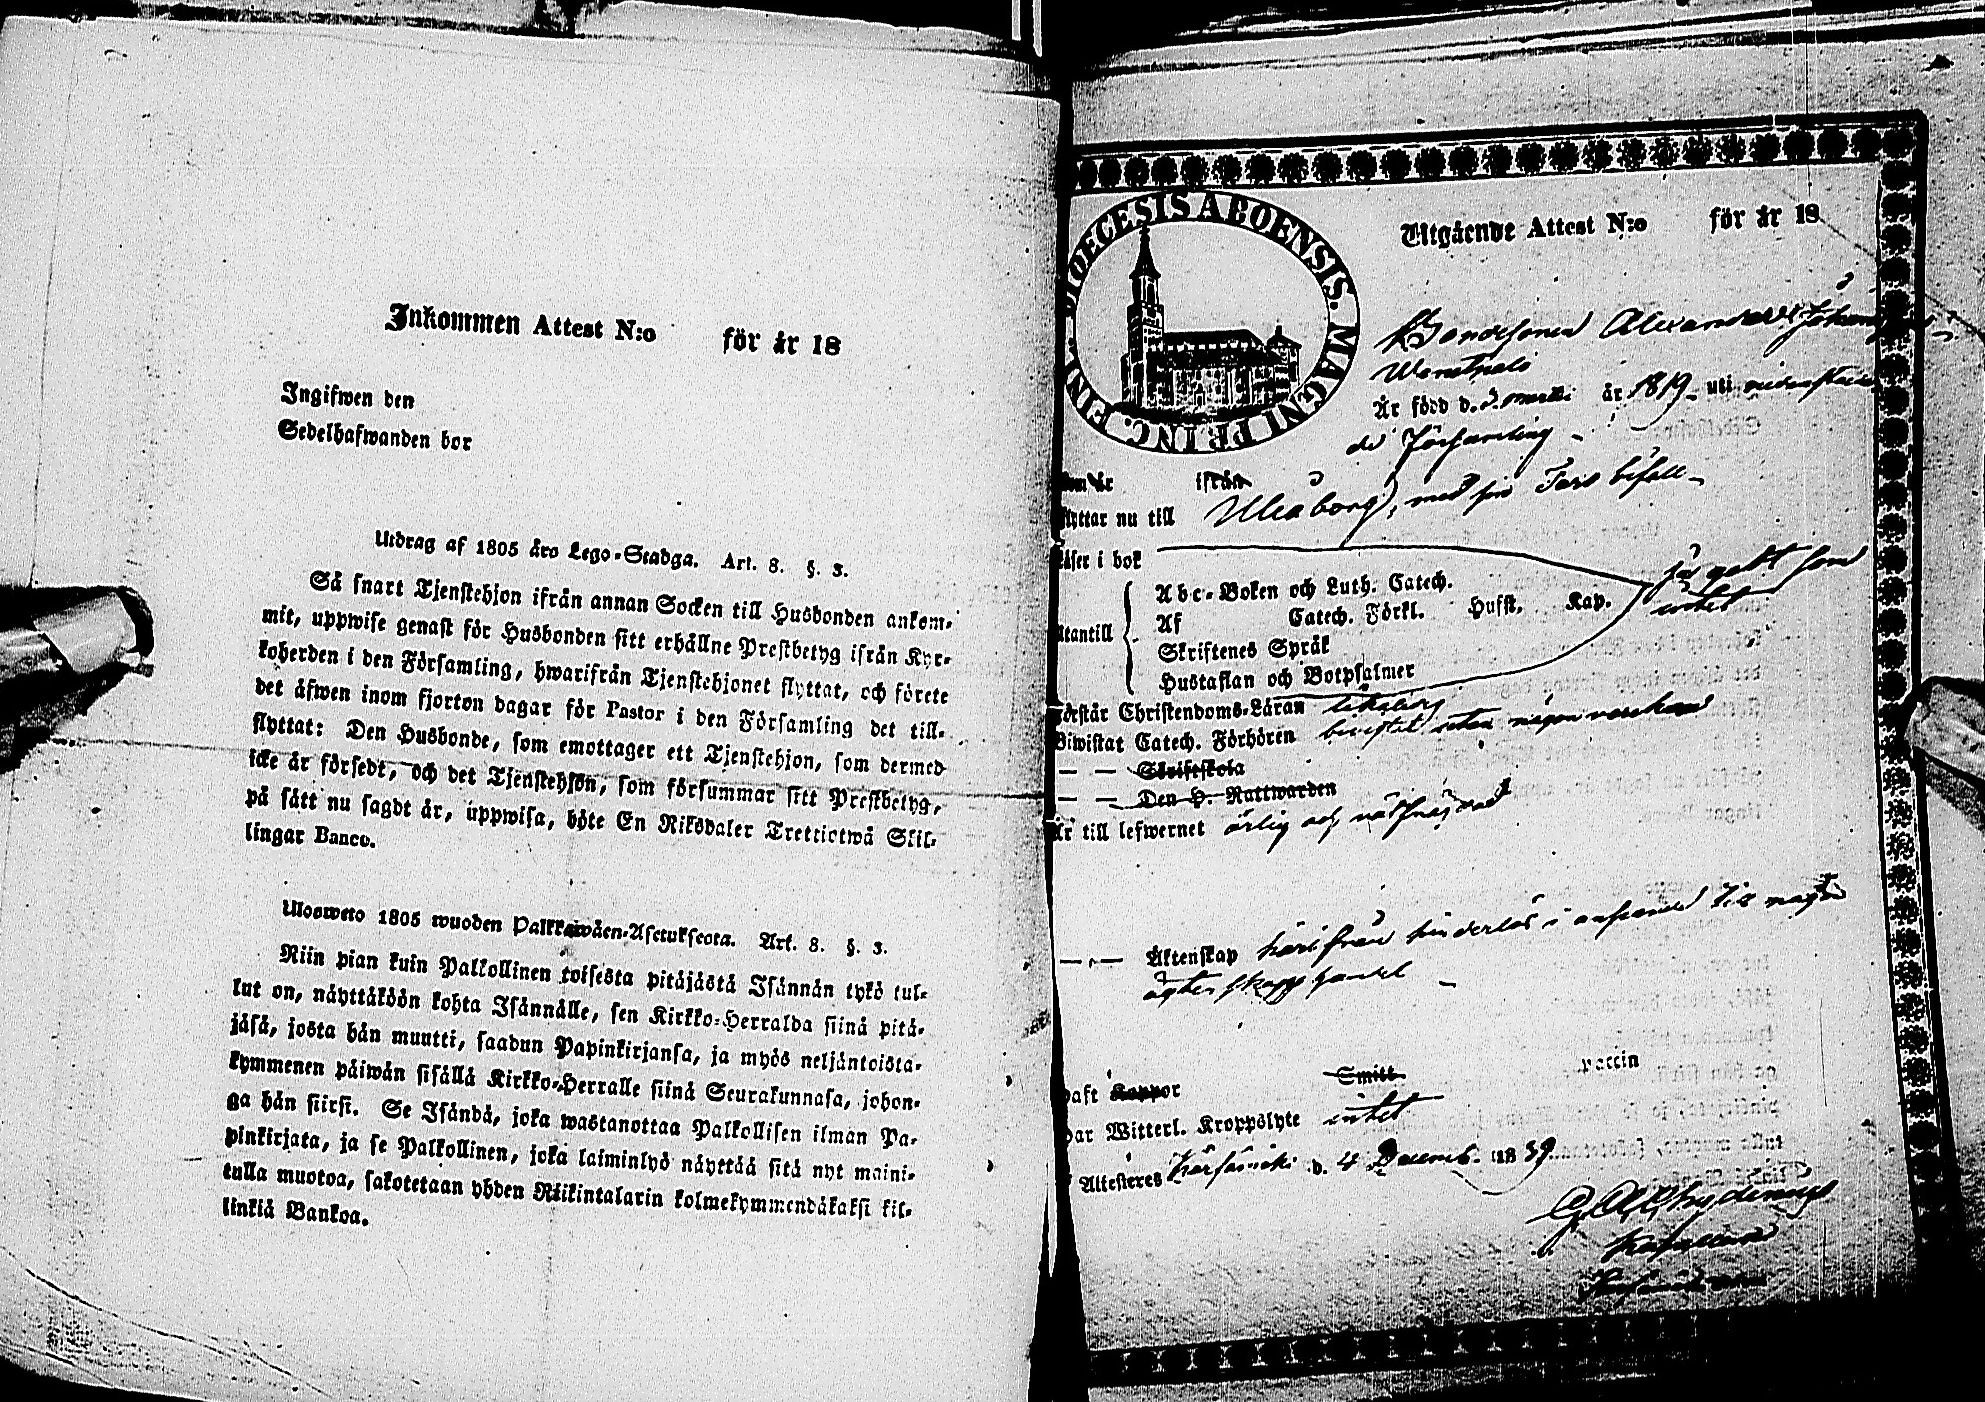 Inkommen Attest N:o för år 18
Ingifwen den
Sedelhafwanden bor
Utdrag af 1805 års Lego-Stadga. Art. 8. §. 3.
Så snart Tjenstehjon ifrån annan Socken till Husbonden ankom-
mit, uppwise genast för Husbonden sitt erhållne Prestbetyg ifrån Kyr-
koherden i den Församling, hwarifrån Tjenstehjonet flyttat, och förete
det äfwen inom fjorton dagar för Pastor i den Församling det till-
flyttat: Den Husbonde, som emottager ett Tjenstehjon, som dermed
icke är försedt, och det Tjenstehjon, som försummar sitt Prestbetyg,
på sätt nu sagdt är, uppwisa, böte En Riksdaler Trettiotwå Skil-
lingar Banco.
Ulosweto 1805 wuoden Palkkawäen-Asetuksesta. Art. 8. §. 3.
Niin pian kuin Palkollinen toisesta pitäjästä Isännän tykö tul-
lut on, näyttäköön kohta Isännälle, sen Kirkko-Herralda siinä pitä-
jäsä, josta hän muutti, saadun Papinkirjansa, ja myös neljäntoista-
kymmenen päiwän sisällä Kirkko-Herralle siinä Seurakunnasa, johon-
ga hän siirsi. Se Isändä, joka wastanottaa Palkollisen ilman Pa-
pinkirjata, ja se Palkollinen, joka laiminlyö näyttää sitä nyt maini-
tulla muotoa, sakotetaan yhden Riikintalarin kolmekymmendäkaksi kil-
linkiä Bankoa.
DIOECESIS ABOENSIS. MAGNI PRINC. FINL.
Utgående Attest N:o för år 18
Bondesonen Alexander Johan
Är född d. år 1819 uti nedanståen
de Församling
som är ifrån
flyttar nu till Uleåborg, med sin
Läser i bok
Abc-Boken och Luth. Catech.
utantill Af Catech. Förkl. Hust. Kap.
intet
Skriftenes Språk
Hustaflan och Botpsalmer
Förstår Christendoms-Läran likaledes
Biwistat Catech. Förhören bewistat utan
— — Skriftskola
— — Den H. Nattwarden
Är till lefwernet ärlig och
— — Äktenskap härifrån hinderlös i anseende till något
ägtenskaps handel
Haft Koppor Smitt vaccin
Har Witterl. Kroppslyte intet
Attesteres Kärsämäki d. 4 Decemb. 1839